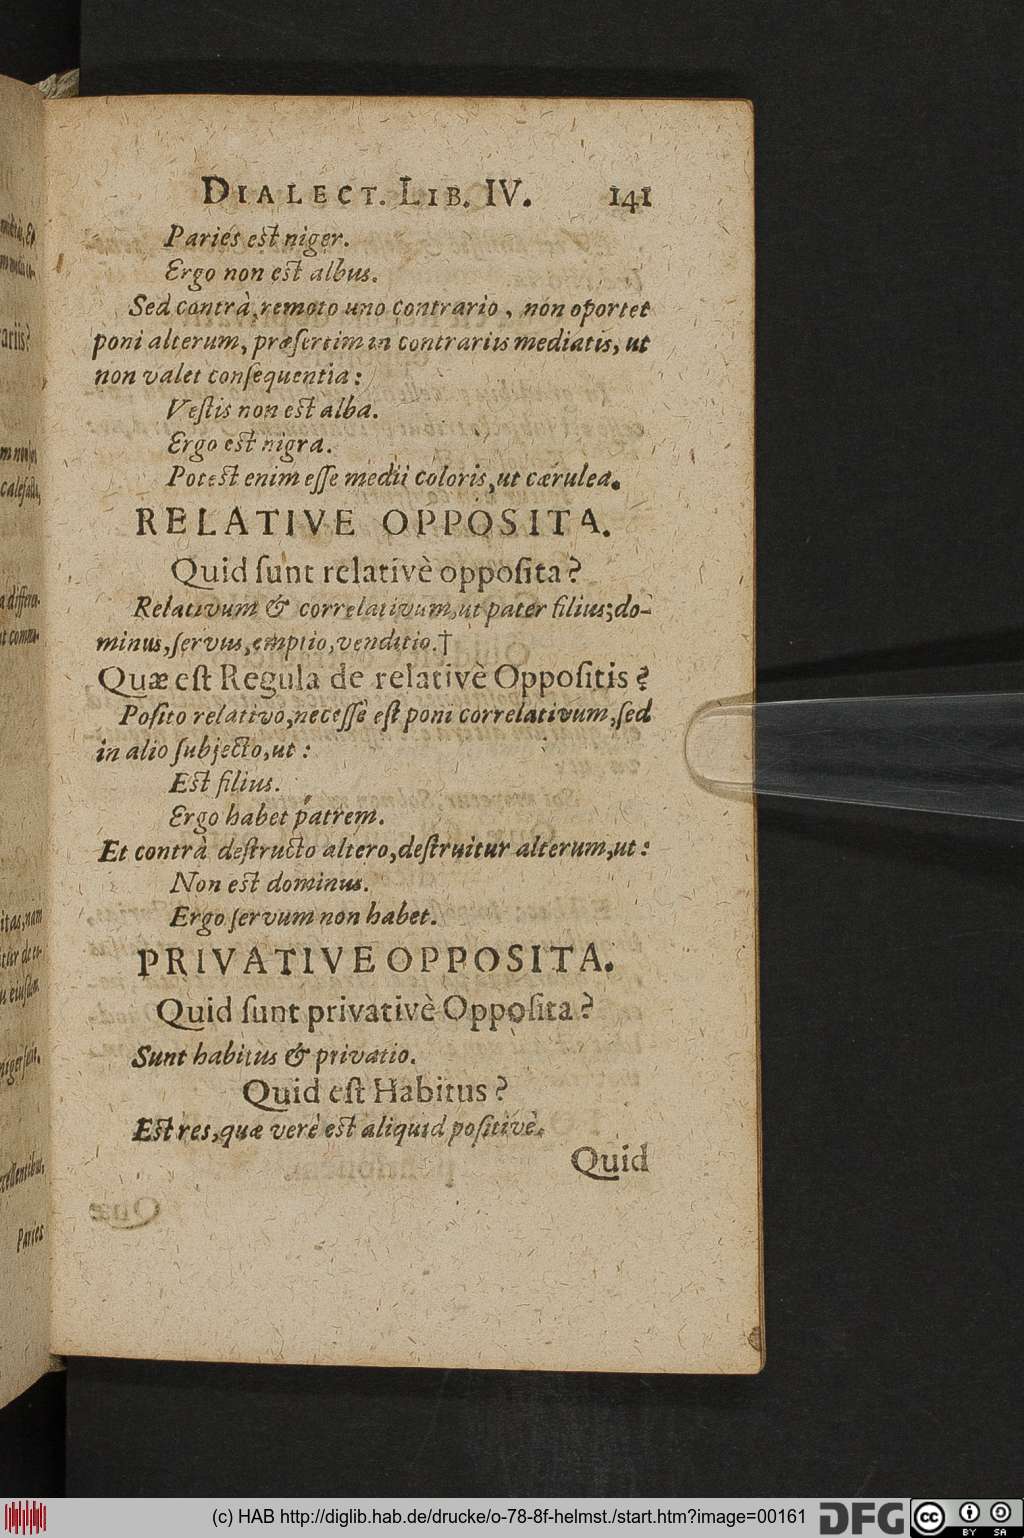 DIALECT. LIB. IV. 141
Paries est niger.
Ergo non est albus.
Sed contrà, remoto uno contrario, non oportet
poni alterum, præſertim in contrariis mediatis, ut
non valet conſequentia:
Veſtis non est alba.
Ergo est nigra.
Potest enim eſſe medii coloris, ut cærulea.
RELATIVE OPPOSITA.
Quid ſunt relativè oppoſita?
Relativum & correlativum, ut pater filius; do-
minus, ſervus, emptio, venditio.†
Quæ eſt Regula de relativè Oppoſitis?
Poſito relativo, neceſſè eſt poni correlativum, ſed
in alio ſubjecto, ut:
Est filius.
Ergo habet patrem.
Et contrà deſtructo altero, deſtruitur alterum, ut:
Non est dominus.
Ergo ſervum non habet.
PRIVATIVE OPPOSITA.
Quid ſunt privativè Oppoſita?
Sunt habitus & privatio.
Quid eſt Habitus?
Est res, quæ verè est aliquid poſitivè.
Quid
Paries
(c) HAB http://diglib.hab.de/drucke/o-78-8f-helmst./start.htm?image=00161
DFG
cc
BY SA